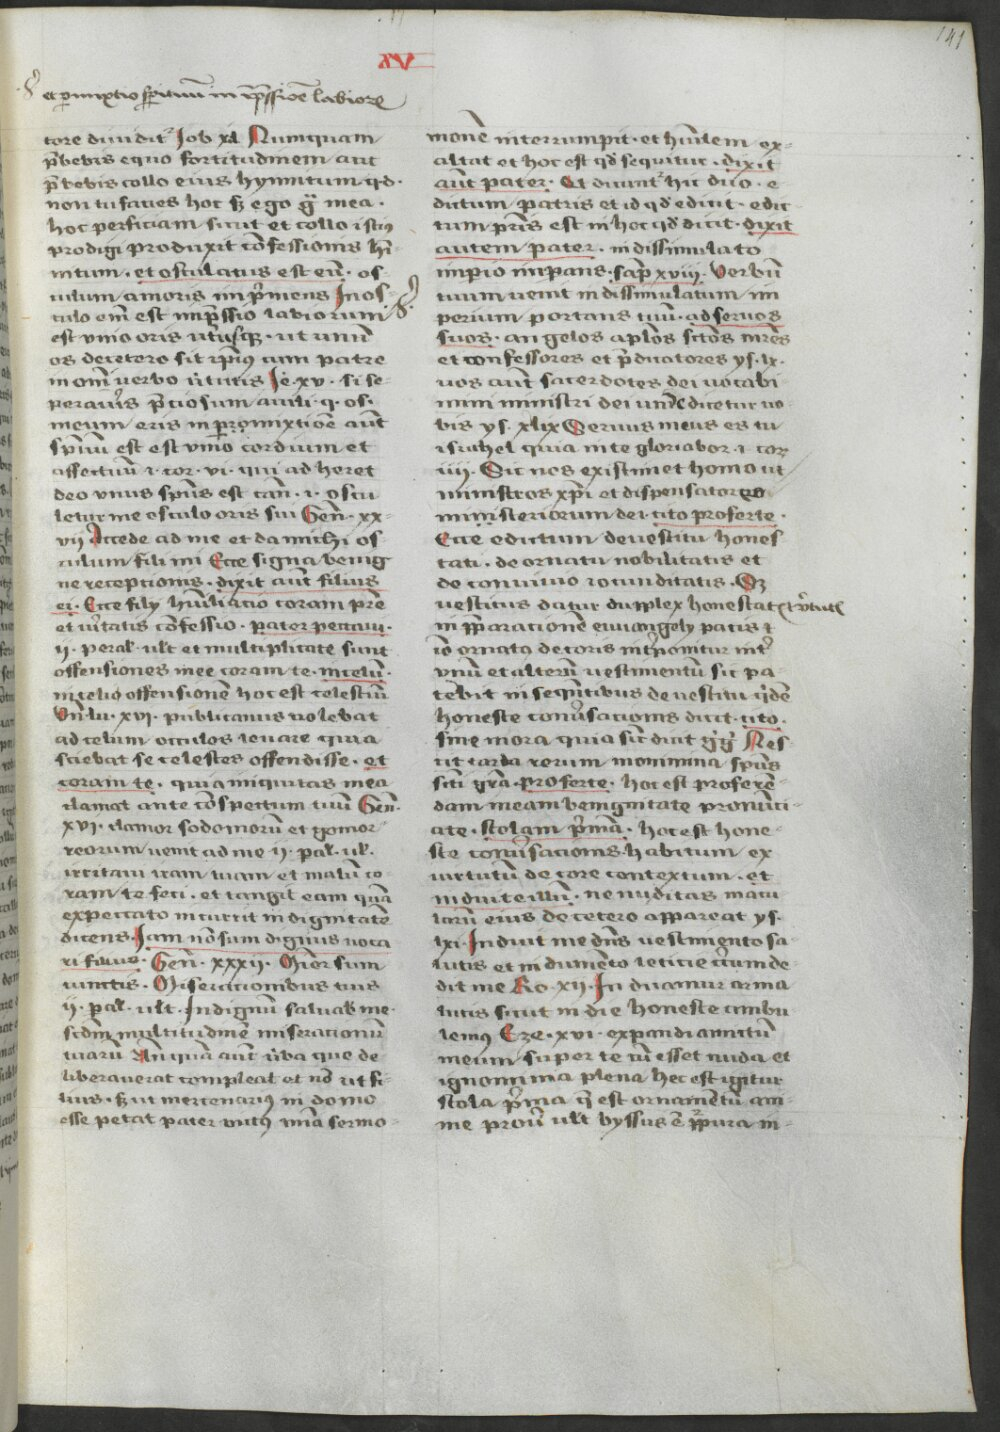 141
XV
et permixtio spirituū in īpressioē labiorū
tore diuidit᷑ Job xl Numquam
p̄bebis equo fortitudinem aut
p̄bebis collo eius hynnitum qd·
non tu facies hoc sꝫ ego gr̄a mea·
hoc perficiam sicut et collo istiꝰ
prodigi produxit cōfessionis hī
nitum· et osculatus est eū· os
culum amoris imp̄mens In os
culo em̄ est imp̄ssio labiorum
est vnio oris vtriusqꝫ· ut unū
os de cetero sit ip̄ius cum patre
in om̄i verbo v̄itatis Je· xv· si se
peraueris p̄ciosum a uili q· os·
meum eris in permixtiōe aūt
sp̄uū est est vnio cordium et
affectuū i· cor· vi· qui adheret
deo vnus sp̄us est cān· i· oscu
letur me osculo oris sui Gen̄· xx
vii Accede ad me et da michi os
culum fili mi Ecce signa benig
ne receptionis· dixit aūt filius
ei· Ecce filij humiliacio coram pr̄e
et v̄itatis cōfessio· pater peccaui·
ii· peral· ult et multiplicate sunt
offensiones mee coram te· in celū·
in celio offensionē hoc est celestiū
Vn̄ lu· xvi· publicanus nolebat
ad celum occulos leuare quia
sciebat se celestes offendisse· et
coram te· quia iniquitas mea
clamat ante cōspectum tuū Gen̄·
xvi· clamor sodomorū et gomor
reorum uenit ad me ii· pal· ul·
irritaui iram tuam et malū co
ram te feci· et tangit eam quā
ex peccato incurrit indignitatē
dicens Jam nō sum dignus uoca
ri filius· Gen̄· xxxii· Minor sum
cunctis· Miseracionibus tuis
ii· pal· ult· Indignū saluab̄ me·
scdm multitudinē miseracionū
tuarū An̄quā aūt v̄ba que de
liberauerat compleat et nō ut fi
lius· sꝫ ut mercenariꝰ in domo
esse petat pater unitꝰ mīa sermo
monē interrumpit· et huīlem ex
altat et hoc est qd sequitur· dixit
aūt pater· Et diuunt᷑ hic duo· e
dictum patris et id qd edicit· edic
tum pr̄is est in hoc qd dicit· dixit
autem pater· in dissimulato
impio inpans· sap̄ xviii· Verbū
tuum uenit in dissimulatum im
perium portans tuū· ad seruos
suos· angelos ap̄los sctōs mr̄es
et confessores et p̄dicatores ys· lx·
uos aūt sacerdotes dei uocabi
mini ministri dei unde dicetur uo
bis ys· xlix Seruus meus es tu
israhel quia in te gloriabor· i· cor
iiii· Sic nos existimet homo ut
ministros xp̄i et dispensatores
ministeriorum dei· cito proferte·
Ecce edictum de uestitu hones
tati· de ornatu nobilitatis et
de conuiuio iocunditatis· Sꝫ
uestitus datur duplex honestat᷑
in p̄paracionē euuangely pacis et
iō ornata decoris int᷑ponitur int᷑
vnū et alterū uestimentū sic pa
tebit in seq̄ntibus de uestitu q̄dē
honeste conu᷑sacionis dicit· cito·
sine mora quia sic̄ dicit gg̃ Nes
cit tarda rerum monimina sp̄us
sci gr̄a· proferte· hoc est proferē
dam meam benignitate pronūci
ate· stolam p̄mā· hoc est hone
ste conu᷑sacionis habitum ex
uirtutū decore contextum· et
induite illū· ne nuditas macu
larū eius de cetero appareat ys·
lxi· Induit me dn̄s uestimento sa
lutis et indumēto leticie circumde
dit me Ro· xii· Induamur arma
lucis sicut in die honeste ambu
lemꝰ Eze· xvi· expandi amictū
meum super te cū esset nuda et
ignominia plena hec est igitur
stola p̄ma q̄ est ornamētū am
me prou᷑ ult byssus ē p̄pura in